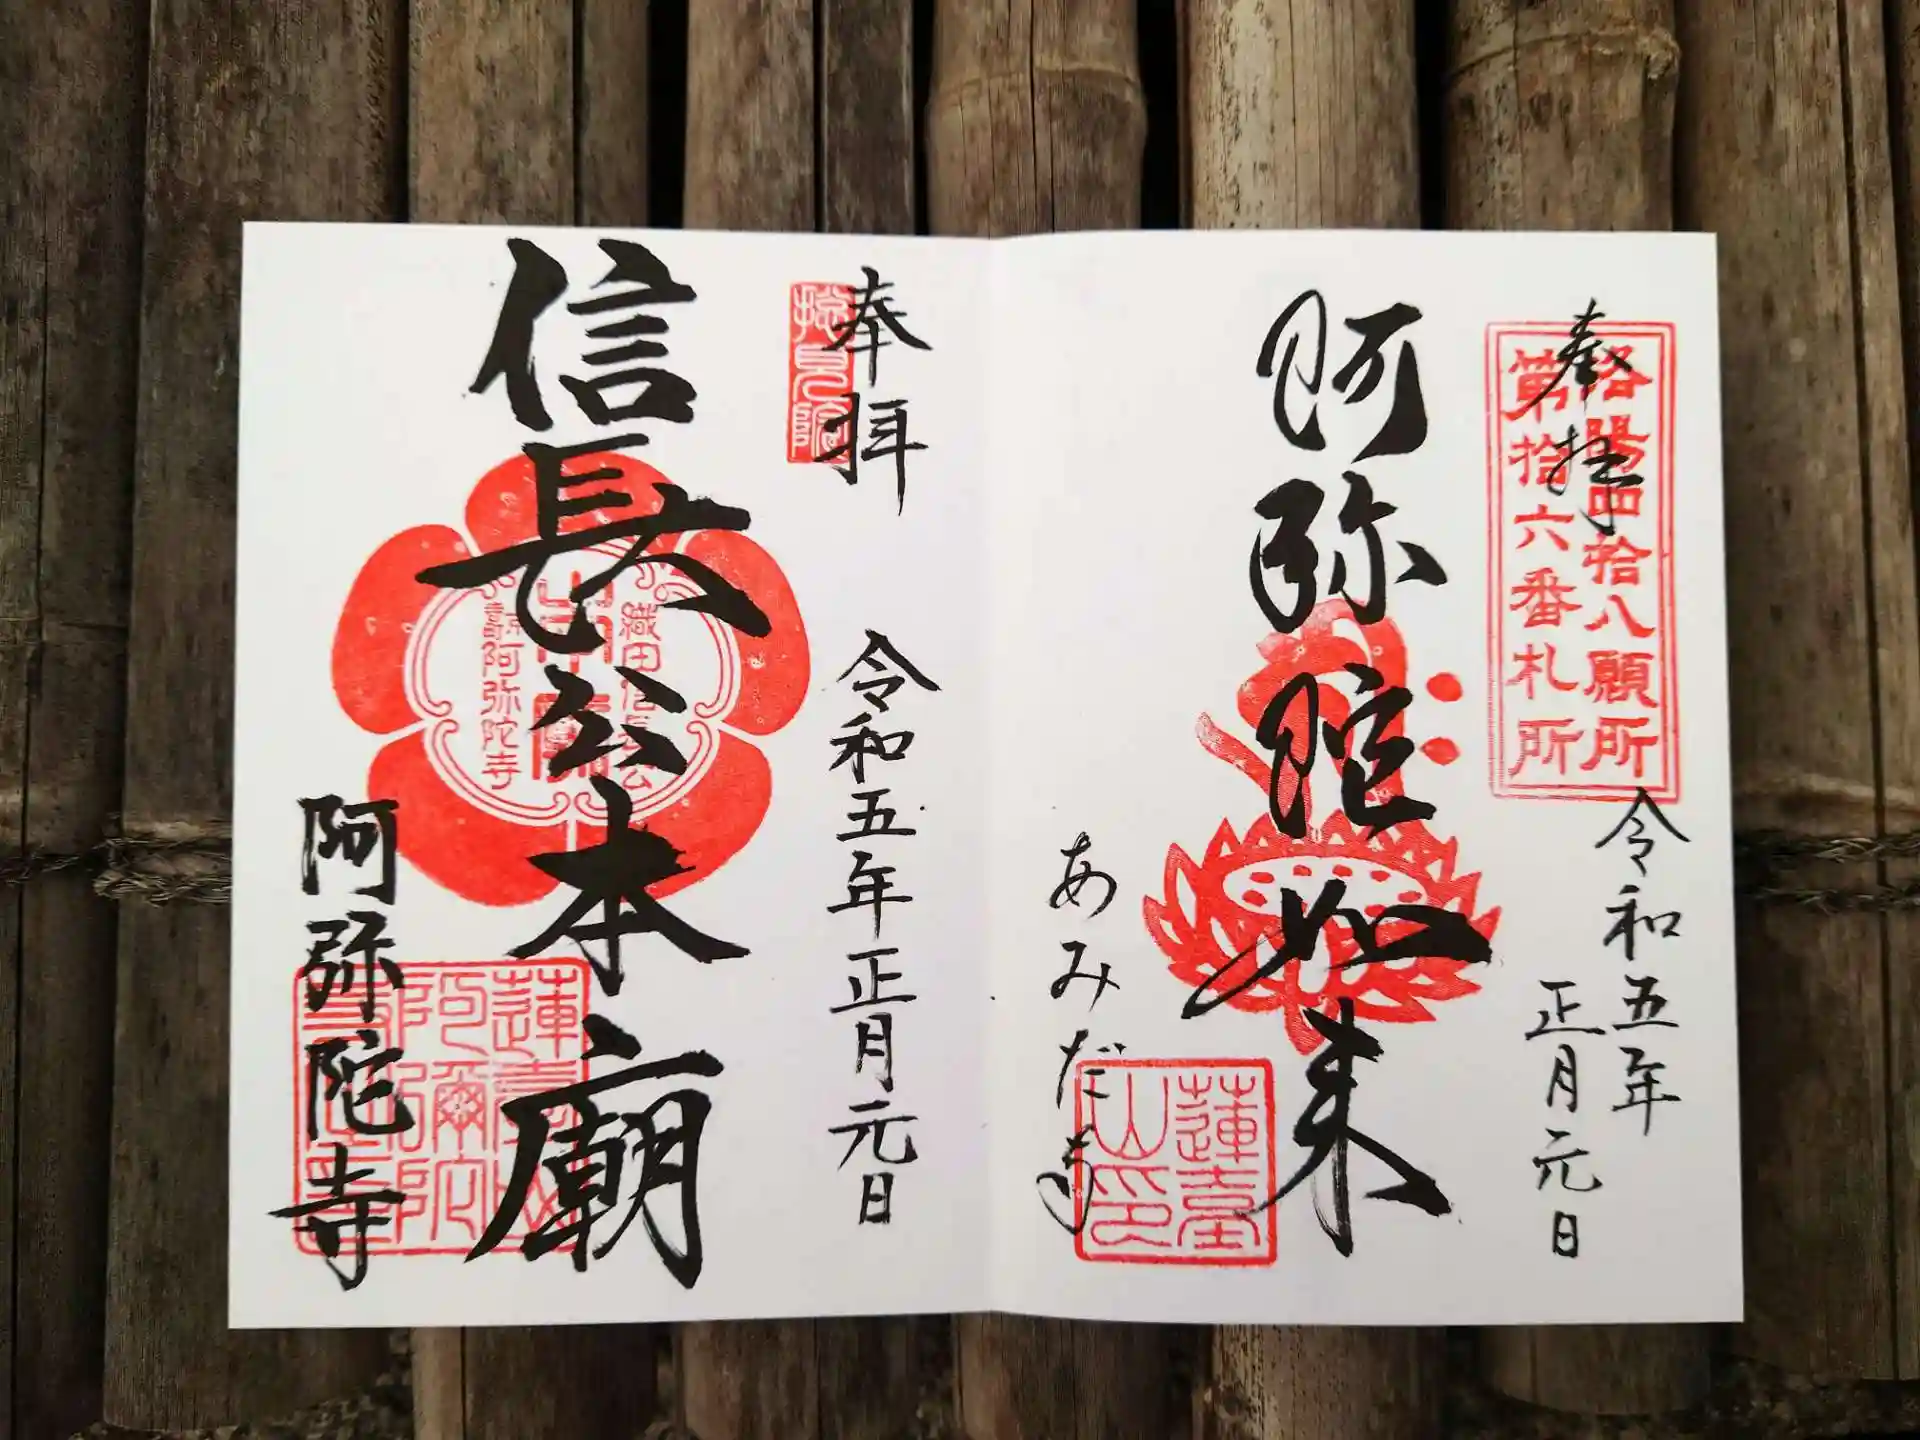 奉拝
洛陽四拾八願所
第拾六番札所
令和五年
正月元日
阿弥陀如来
あみだ寺
蓮臺
山印
奉拝
捴見院
令和五年正月元日
信長公本廟
織田信長公
阿弥陀寺
阿弥陀寺